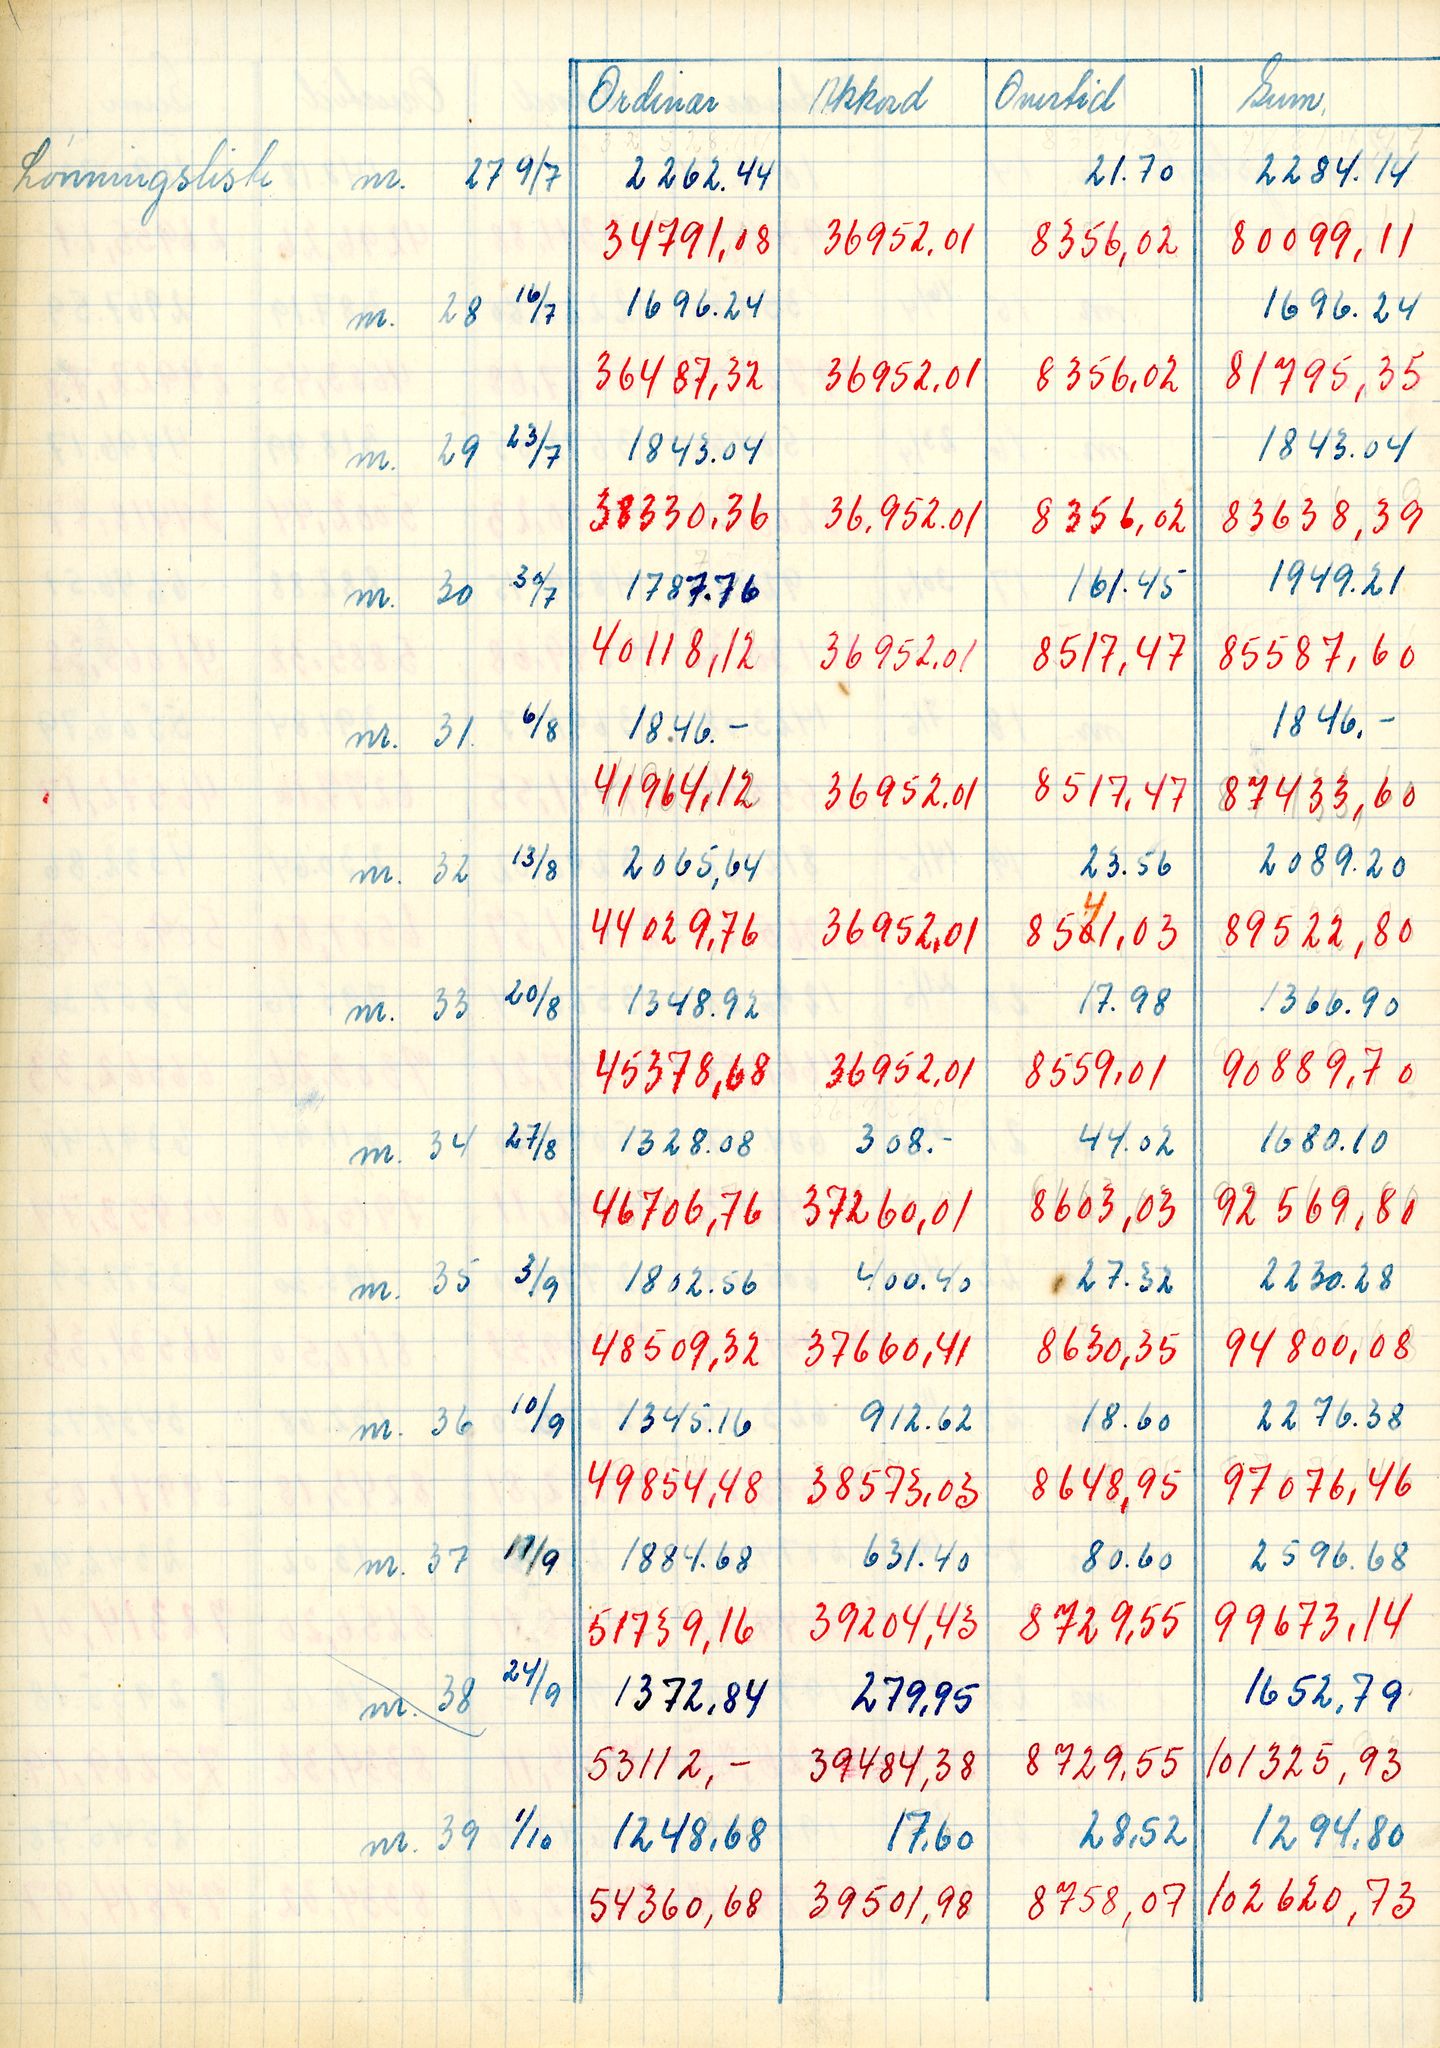 Ordinær Akkord Overtid Sum.
Lønningsliste nr. 27 9/7 2262.44 21.70 2284.14
34791,08 36952.01 8356,02 80099,11
nr. 28 16/7 1696.24 1696.24
36487,32 36952.01 8356,02 81795,35
nr. 29 23/7 1843.04 1843.04
38330.36 36.952.01 8356,02 83638,39
nr. 30 30/7 1787.76 161.45 1949.21
40118,12 36952.01 8517,47 85587,60
nr. 31. 6/8 1846.- 1846.-
41964,12 36952.01 8517,47 87433,60
nr. 32 13/8 2065,64 23.56 2089.20
44029,76 36952,01 8541,03 89522,80
nr. 33 20/8 1348.92 17.98 1366.90
45378,68 36952,01 8559,01 90889,70
nr. 34 27/8 1328.08 308.- 44.02 1680.10
46706,76 37260,01 8603,03 92569,80
nr. 35 3/9 1802.56 400.40 27.32 2230.28
48509,32 37660,41 8630,35 94800,08
nr. 36 10/9 1345.16 912.62 18.60 2276.38
49854,48 38573,03 8648,95 97076,46
nr. 37 17/9 1884.68 631.40 80.60 2596.68
51739,16 39204,43 8729,55 99673,14
nr. 38 24/9 1372,84 279,95 1652,79
53112,- 39484,38 8729,55 101325,93
nr. 39 1/10 1248,68 17,60 28,52 1294,80
54360,68 39501,98 8758,07 102620,73